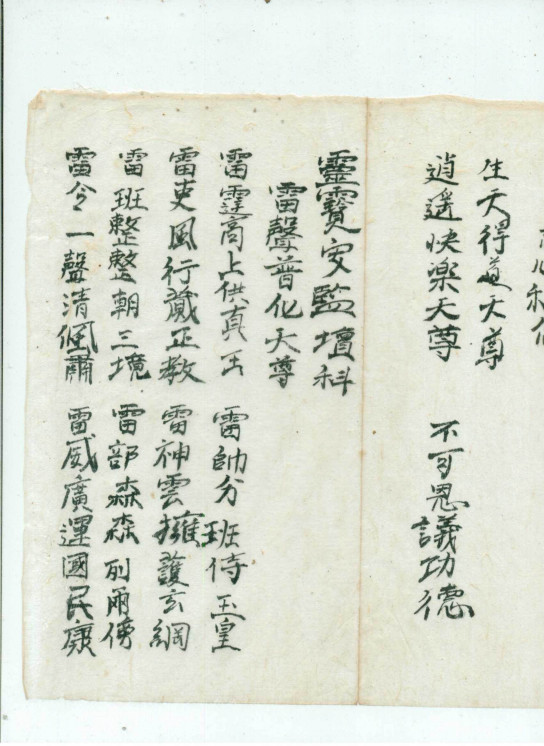 生天得道天尊
逍遥快樂天尊 不可思議功德
靈寶安監壇科
雷聲普化天尊
雷霆高上供真王 雷帥分班侍玉皇
雷吏風行藏正教 雷神雲擁護玄綱
雷班整整朝三境 雷部森森列兩傍
雷令一聲清佩肅 雷威廣運國民康